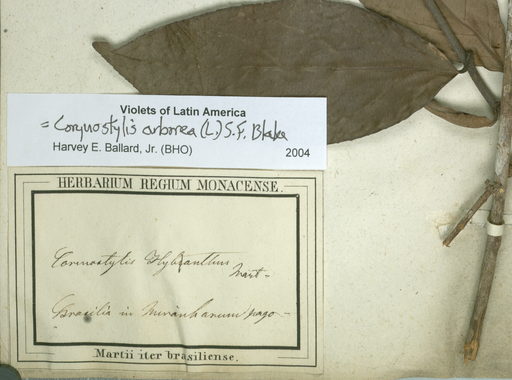 Violets of Latin America
= Corynostylis arborea (L.) S.F. Blake
Harvey E. Ballard, Jr. (BHO)
2004
HERBARIUM REGIUM MONACENSE.
Corynostylis Hybanthus
Mart-
Brasilia in Miranharum pago-
Martii iter brasiliense.